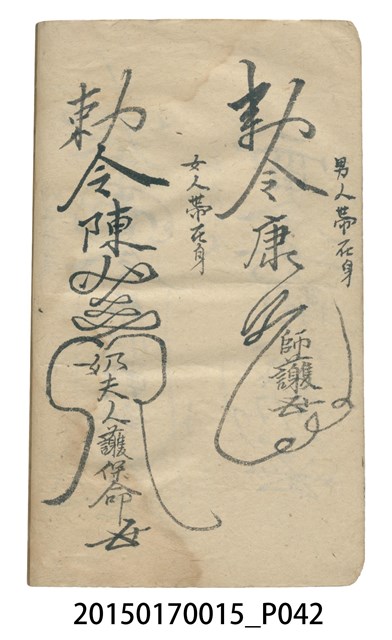 男人帶在身
勅令康
師護
女人帶在身
勅令陳
奶夫人護保命
20150170015_P042